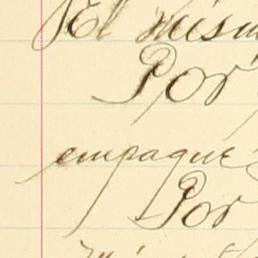 El mism
Por
empaque
Por